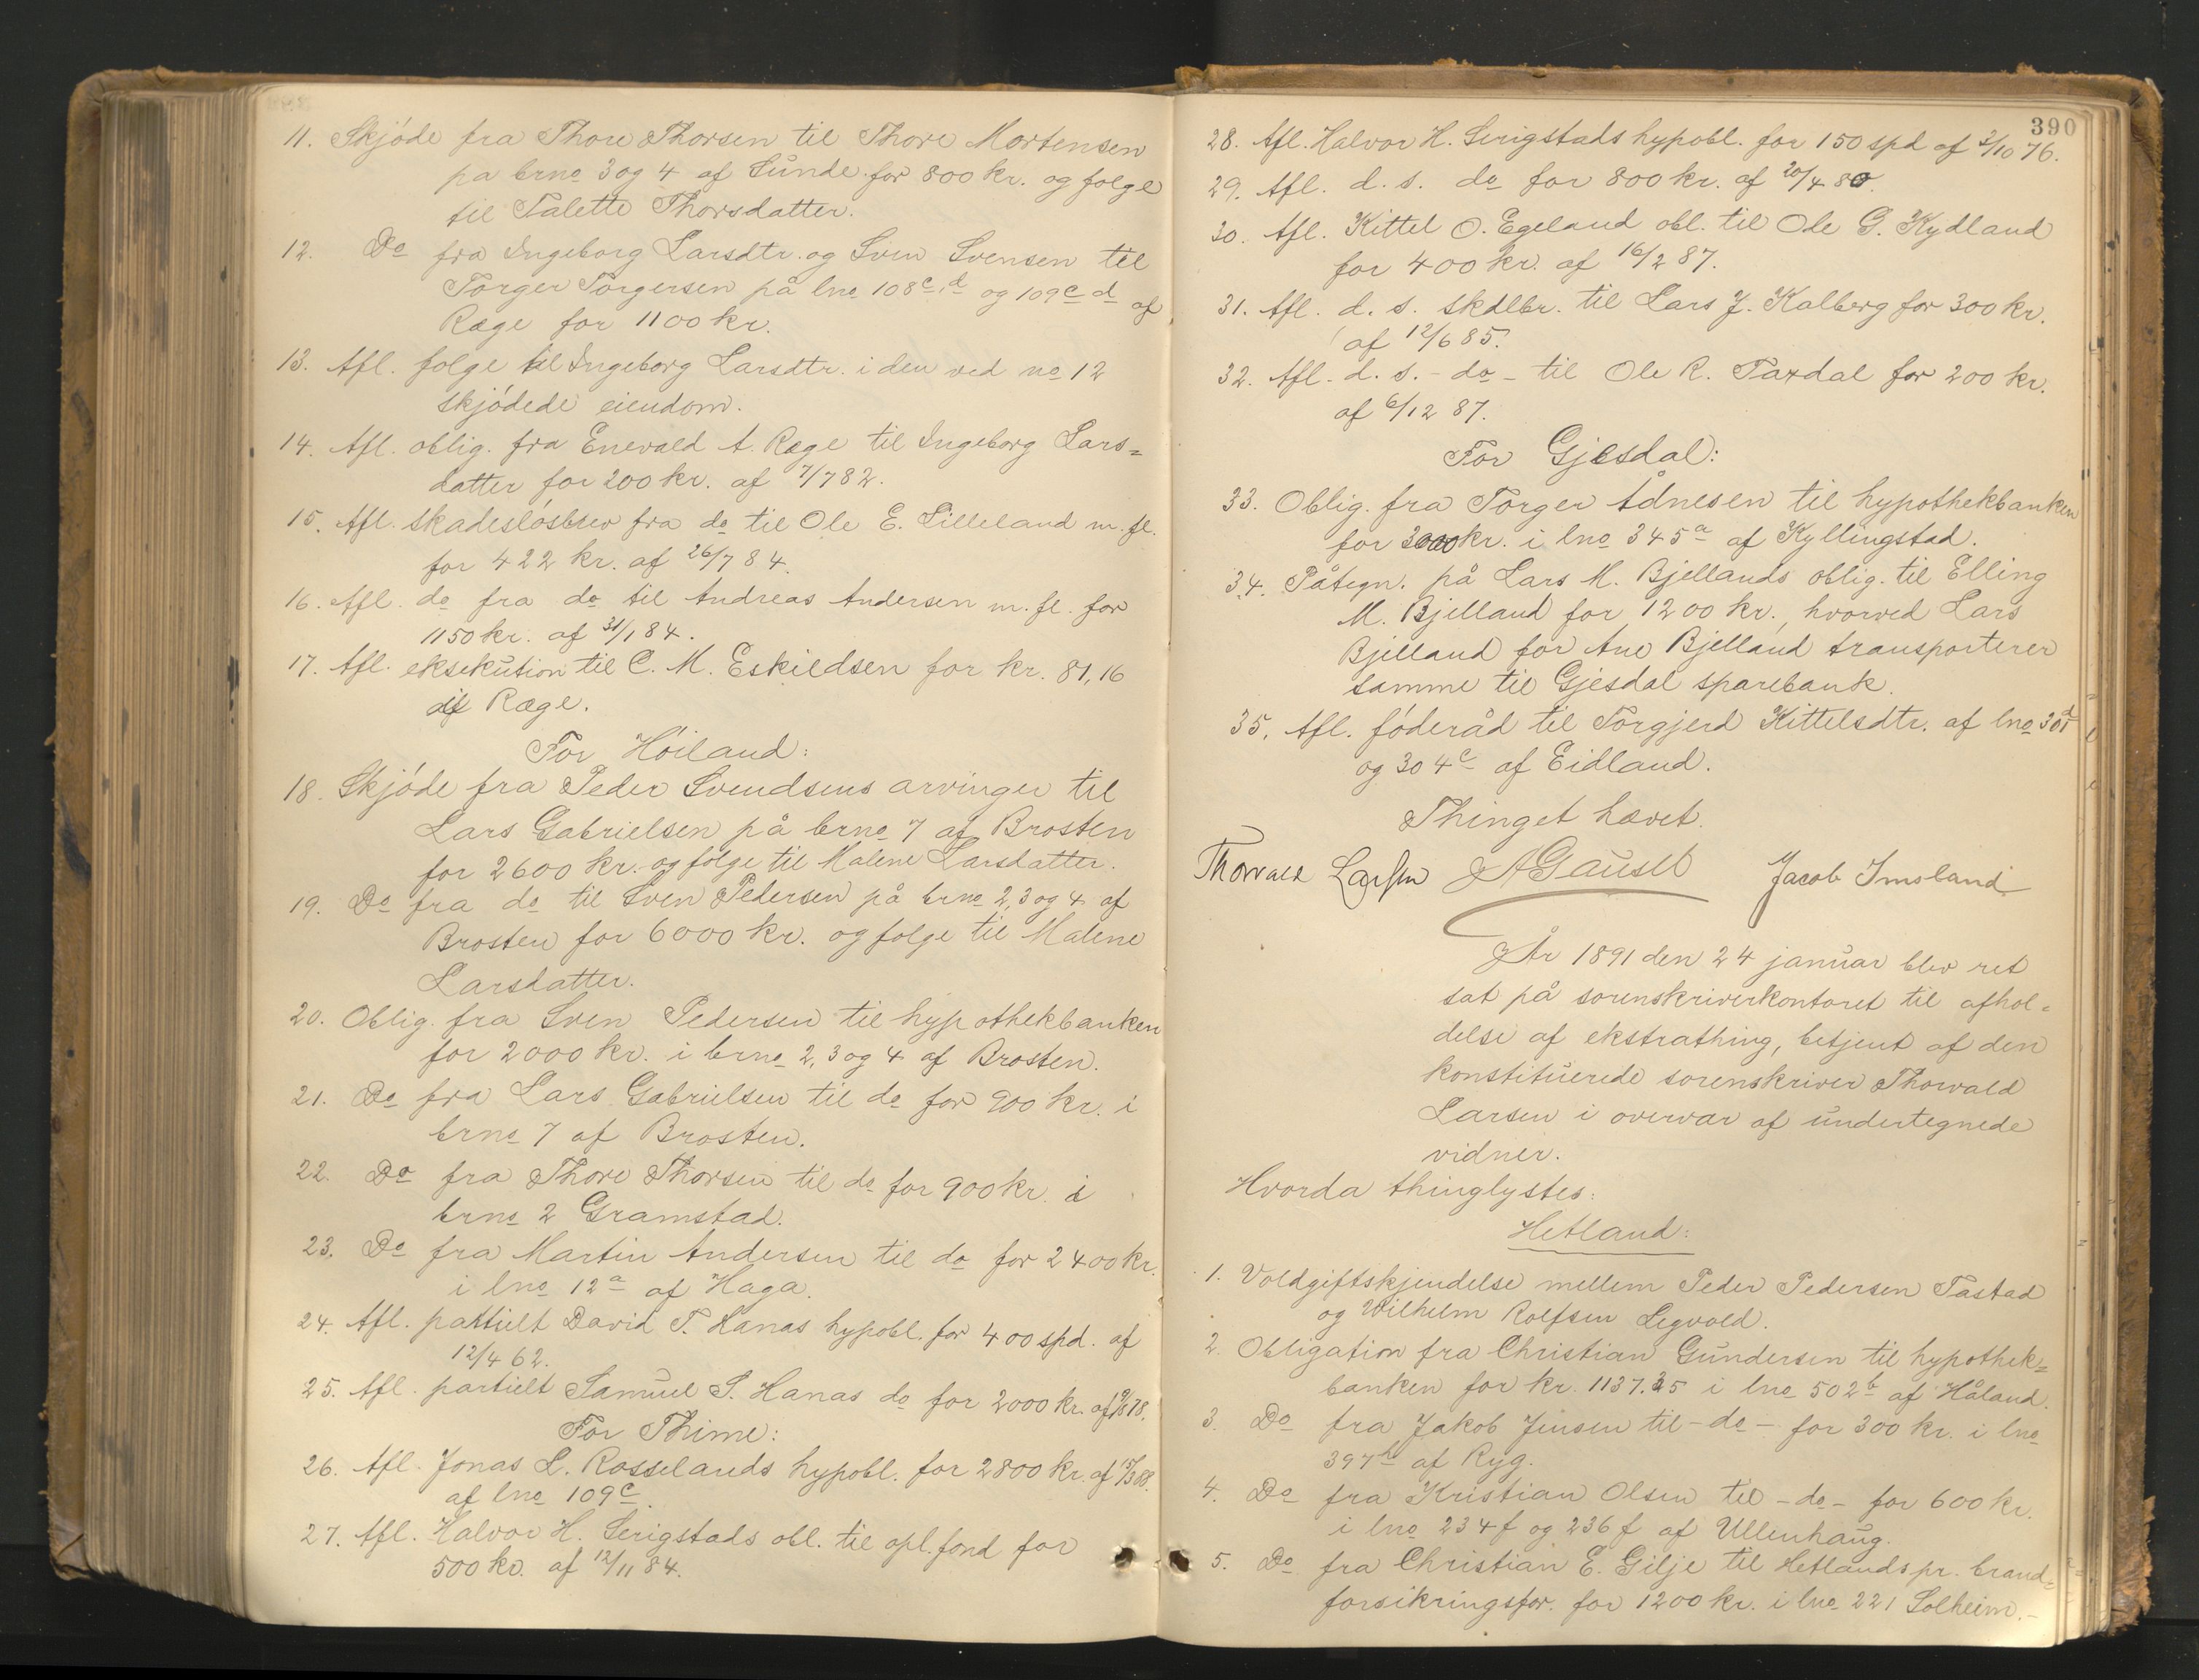 11. Skjøde fra Thore Thorsen til Thore Mortensen
på brno 3 og 4 af Sunde for 800 kr. og folge
til Talette Thorsdatter.
12. Do fra Ingeborg Larsdtr. og Sven Svensen til
Torger Torgersen på lno 108c,d og 109c d af
Ræge for 1100 kr.
13. Afl. folge til Ingeborg Larsdtr. i den ved no 12
skjødede eiendom.
14. Afl. oblig. fra Enevald A. Ræge til Ingeborg Lars=
datter for 200 kr. af 7/7 82.
15. Afl. skadesløsbrev fra do til Ole E. Lilleland m. fl.
for 422 kr. af 26/7 84.
16. Afl. do fra do til Andreas Andersen m. fl. for
1150 kr. af 31/1 84.
17. Afl. eksekution til C. M. Eskildsen for kr. 81,16
af Ræge.
For Høiland:
18. Skjøde fra Peder Svendsens arvinger til
Lars Gabrielsen på brno 7 af Brosten
for 2600 kr. og følge til Malene Larsdatter.
19. Do fra do til Sven Pedersen på brno 2, 3 og 4 af
Brosten for 6000 kr. og folge til Malene
Larsdatter.
20. Oblig. fra Sven Pedersen til hypothekbanken
for 2000 kr. i brno 2, 3 og 4 af Brosten.
21. Do fra Lars Gabrielsen til do for 900 kr. i
brno 7 af Brosten.
22. Do fra Thore Thorsen til do for 900 kr. i
brno 2 Gramstad.
23. Do fra Martin Andersen til do for 2400 kr.
i lno 12a af Haga.
24. Afl. partielt David T. Hanas hypobl. for 400 spd. af
12/4 62.
25. Afl. partielt Samuel S. Hanas do for 2000 kr. af 78.
For Thime:
26. Afl. Jonas L. Rosselands hypobl. for 2800 kr. af 15/3 88.
af lno 109c.
27. Afl. Halvor H. Serigstads obl. til opl. fond for
500 kr. af 12/11 84.
390
28. Afl. Halvor H. Serigstads hypobl. for 150 spd af 2/10 76.
29. Afl. d. s. do for 800 kr. af 20/4 80.
30. Afl. Kittel O. Egeland obl. til Ole G. Kydland
for 400 kr. af 16/2 87.
31. Afl. d. s. skdlbr. til Lars J. Kalberg for 300 kr.
af 12/6 85.
32. Afl. d. s. - do - til Ole R. Taxdal for 200 kr.
af 6/12 87.
For Gjesdal:
33. Oblig. fra Torger Ådnesen til hypothekbanken
for 3000 kr. i lno 345a af Kyllingstad.
34. Påtegn. på Lars M. Bjellands oblig. til Elling
M. Bjelland for 1200 kr., hvorved Lars
Bjelland for Ane Bjelland transporterer
samme til Gjesdal sparebank.
35. Afl. føderåd til Torgjerd Kittelsdtr. af lno 301d
og 304c af Eidland.
Thinget hævet.
Thorvald Larsen A Gausel Jacob Imsland
År 1891 den 24 januar blev ret
sat på sorenskriverkontoret til afhol=
delse af ekstrathing, betjent af den
konstituerede sorenskriver Thorvald
Larsen i overvær af undertegnede
vidner.
Hvorda thinglystes:
Hetland:
1. Voldgiftskjendelse mellem Peder Pedersen Tastad
og Wilhelm Rolfsen Legvold.
2. Obligation fra Christian Gundersen til hypothek=
banken for kr. 1137.35 i lno 502b af Håland.
3. Do fra Jakob Jensen til - do - for 300 kr. i lno
397h af Ryg.
4. Do fra Kristian Olsen til - do - for 600 kr.
i lno 234f og 236f af Ullenhaug.
5. Do fra Christian E. Gilje til Hetlands pr. brand=
forsikringsfor. for 1200 kr. i lno 221 Solheim.-